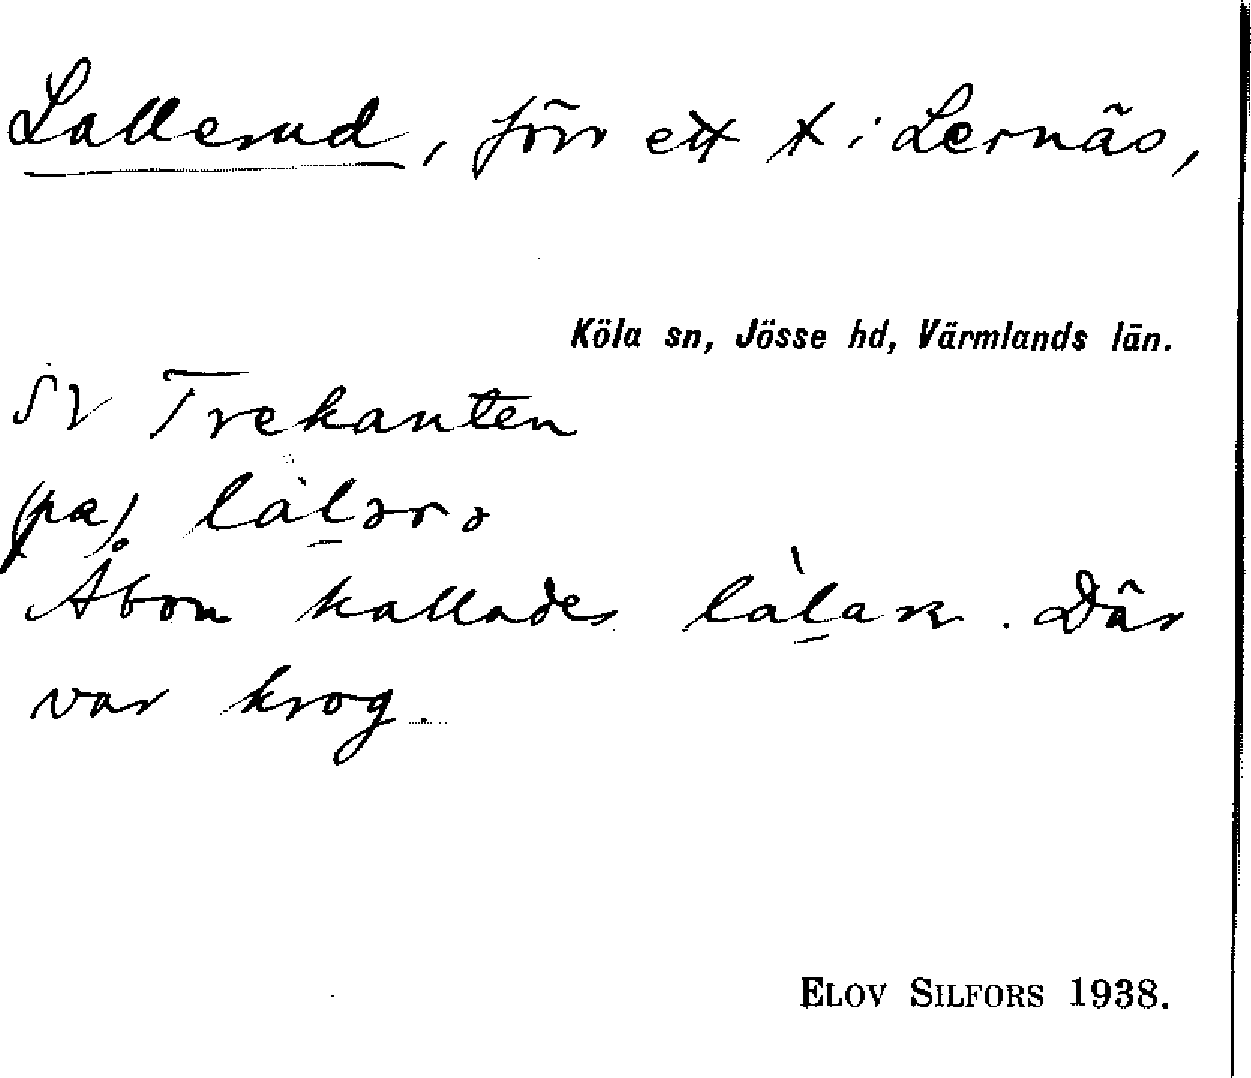 Lallerud, förr ett t i Lernäs,
Köla sn, Jösse hd, Värmlands län.
SV Trekanten
(pa)
Åbon kallades . Där
var krog.
ELOV SILFORS 1938.